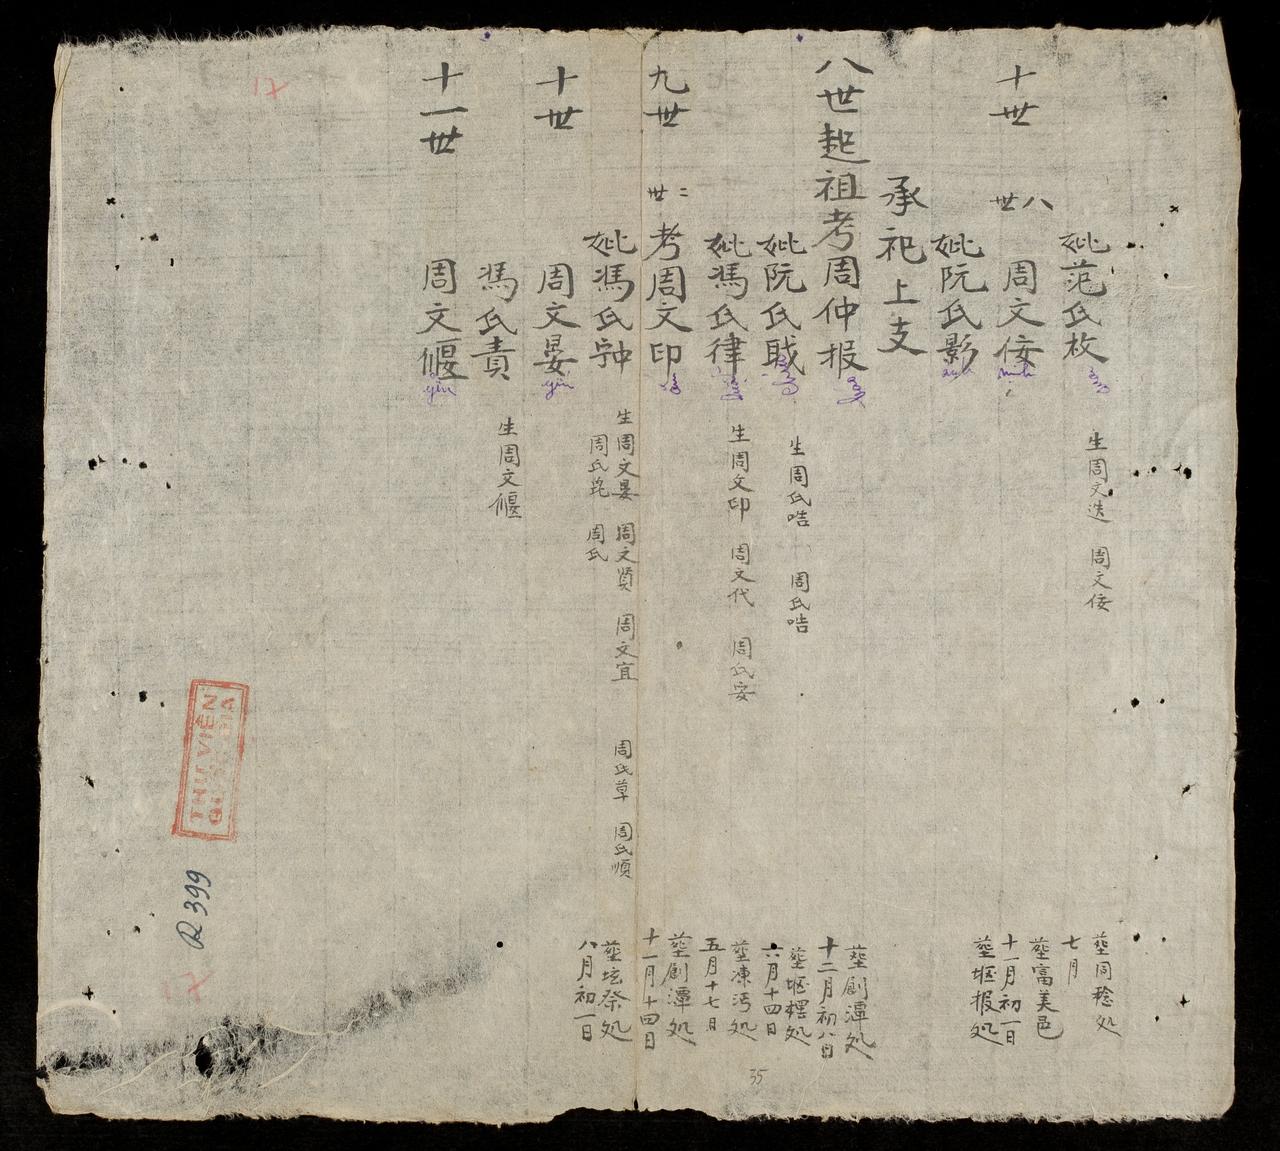 妣范氏枚
生周文迭 周文倿
塟同稔処
七月
十世
八世
周文倿
塟富美邑
十一月初一日
妣阮氏影
塟堰报処
承祀上支
八世起祖考周仲报
塟創潭処
十二月初八日
妣阮氏戢
生周氏唘 周氏唘
六月十四日
妣馮氏律
生周文印 周文代 周氏安
塟凍沔処
五月十七日
九世
二世
考周文印
塟創潭処
十一月十四日
妣馮氏钟
生周文晏 周文贤 周文宜 周氏草 周氏順
周氏 周氏
塟坛祭処
八月初一日
十世
周文晏
yến
馮氏責
生周文偃
十一世
周文偃
yển
THƯ VIỆN
R 399
35
17